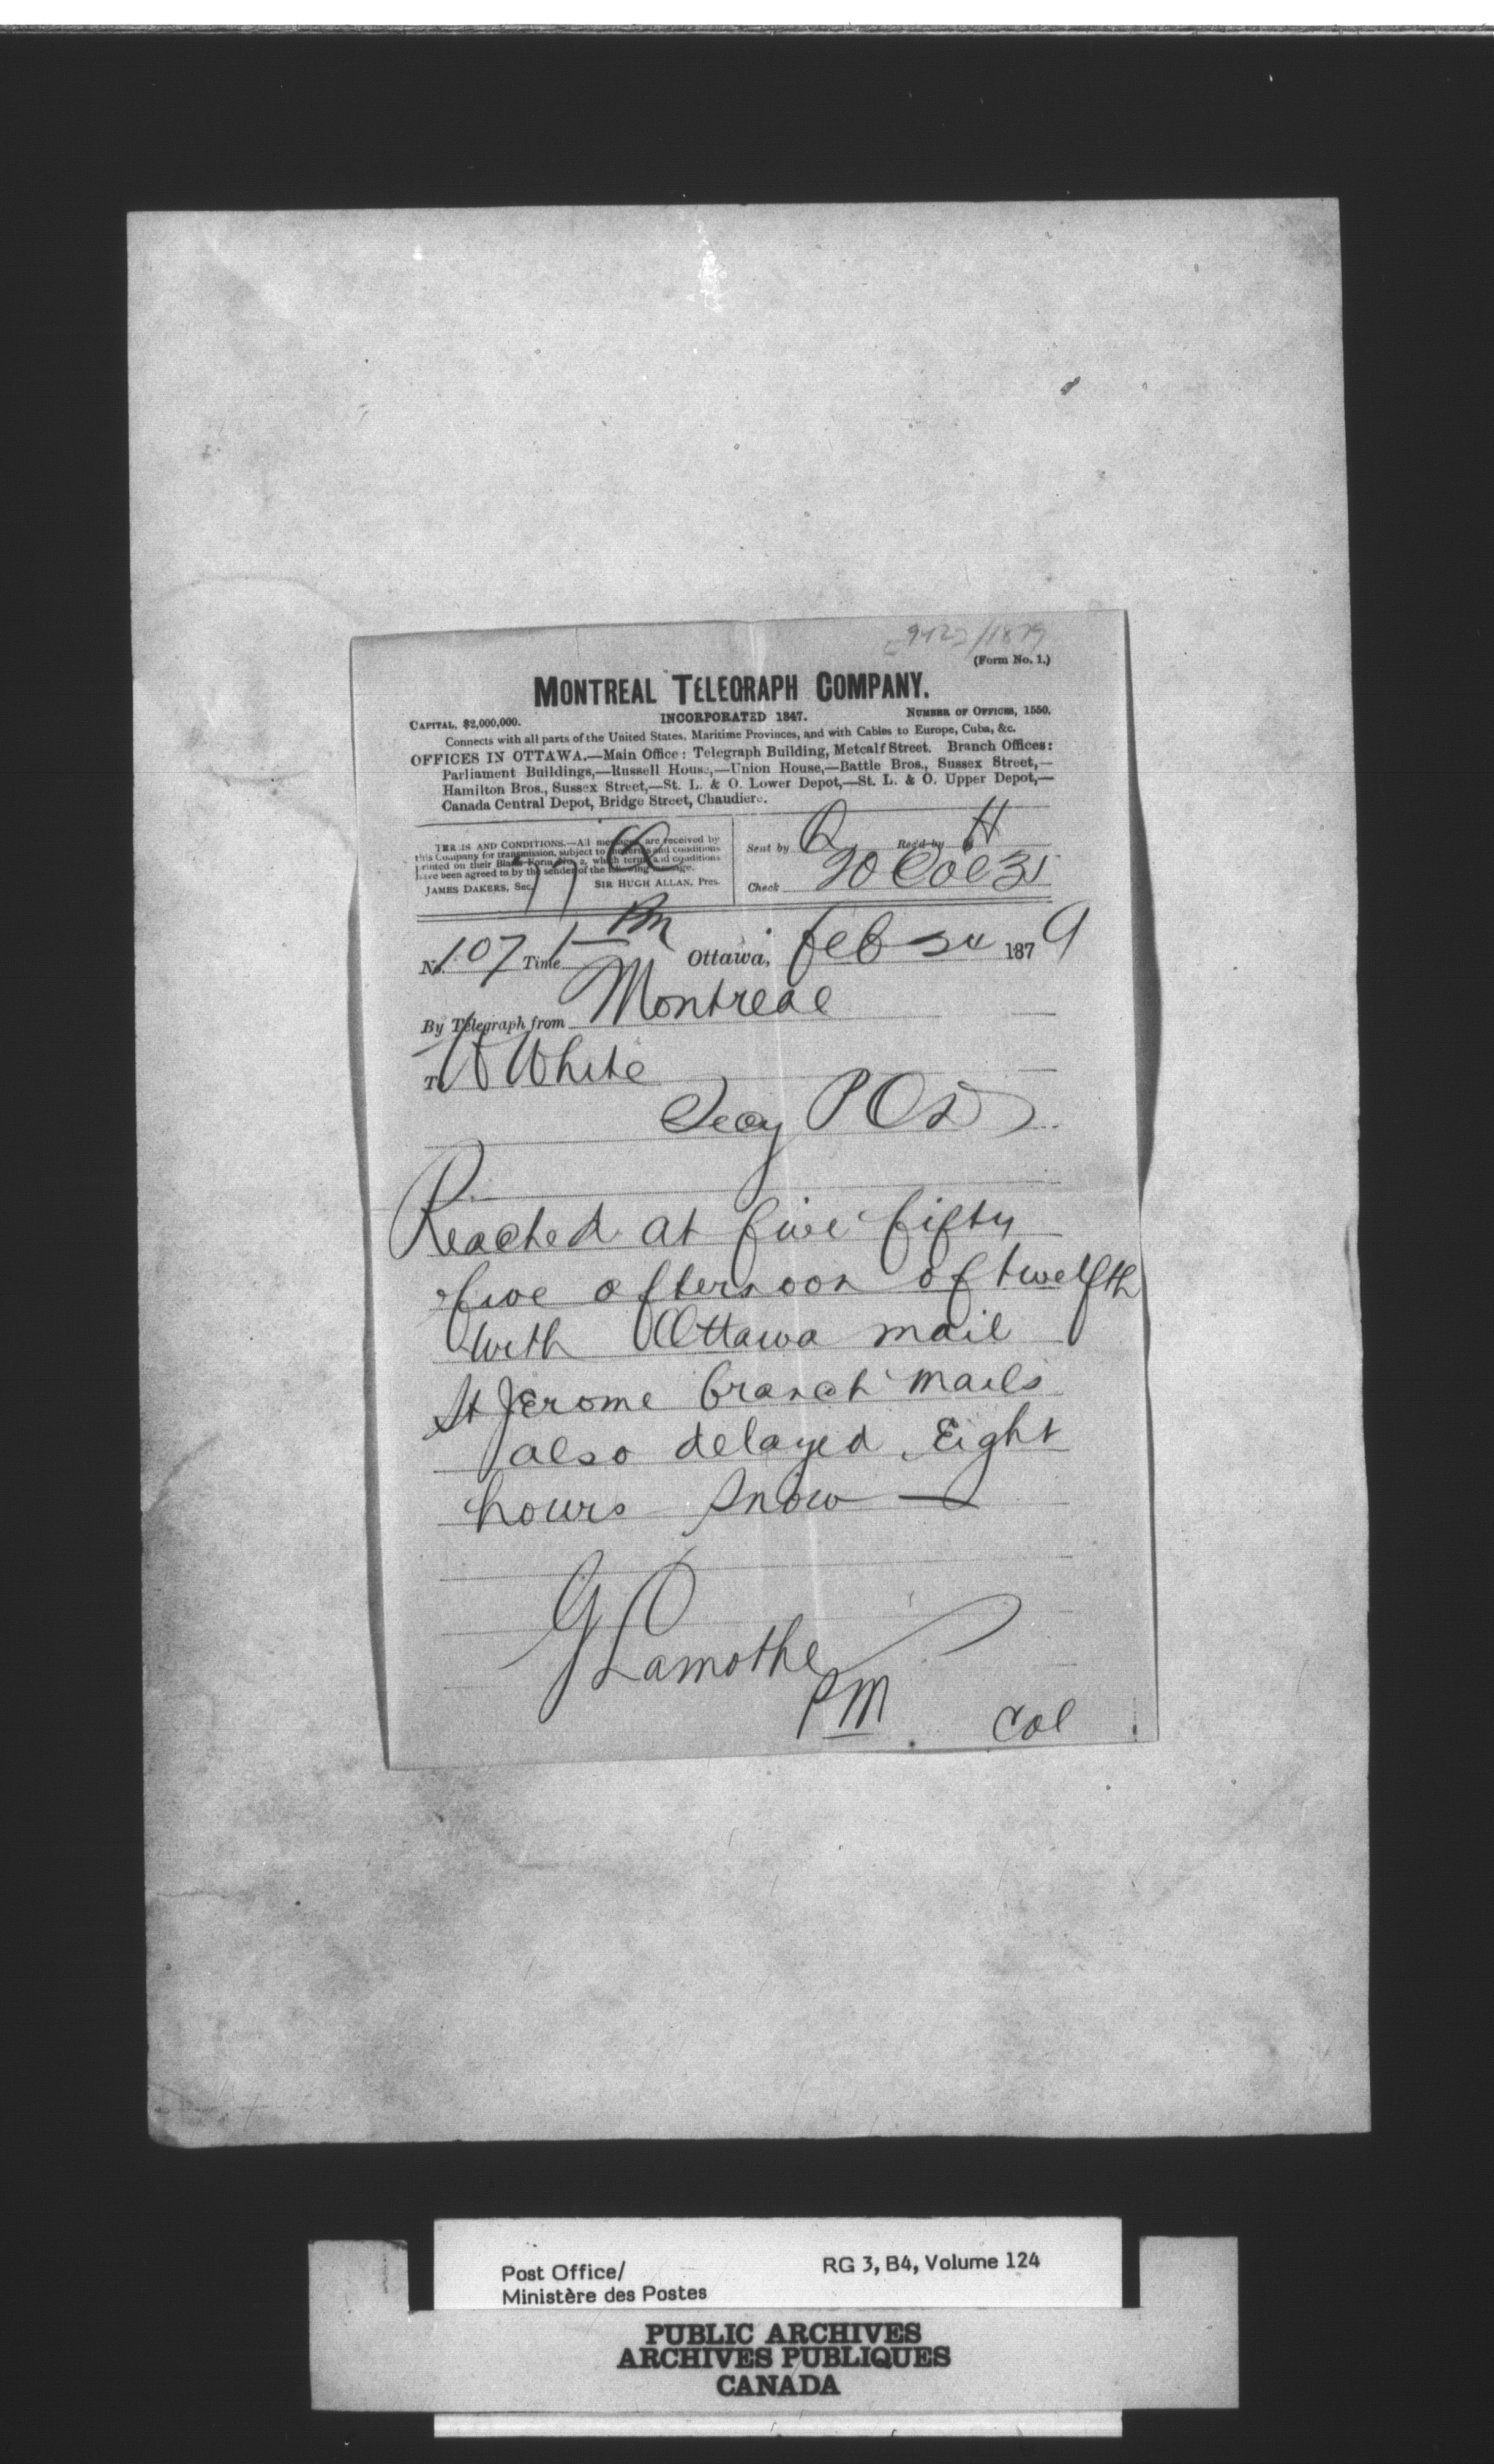 /1879
(Form No. 1.)
MONTREAL TELEGRAPH COMPANY.
CAPITAL, $2,000,000. INCORPORATED 1847. NUMBER OF OFFICES, 1550.
Connects with all parts of the United States, Maritime Provinces, and with Cables to Europe, Cuba, &c.
OFFICES IN OTTAWA.—Main Office: Telegraph Building, Metcalf Street. Branch Offices:
Parliament Buildings,—Russell House,—Union House,—Battle Bros., Sussex Street,—
Hamilton Bros., Sussex Street,—St. L. & O. Lower Depot,—St. L. & O. Upper Depot,—
Canada Central Depot, Bridge Street, Chaudiere.
TERMS AND CONDITIONS.—All messages are received by
this Company for transmission, subject to the terms and conditions
printed on their Blank Form No. 2, which terms and conditions
have been agreed to by the sender of the following message.
JAMES DAKERS, Sec. SIR HUGH ALLAN, Pres.
Sent by Rec'd by H
Check 20 Col 35
No. 107 Time 1 PM Ottawa, Feb 1879
By Telegraph from Montreal
To W White
Secy POD
Reached at five fifty
five afternoon of twelfth
with Ottawa mail
St Jerome branch mails
also delayed Eight
hours Snow —
G Lamothe
PM Col
Post Office/ RG 3, B4, Volume 124
Ministère des Postes
PUBLIC ARCHIVES
ARCHIVES PUBLIQUES
CANADA